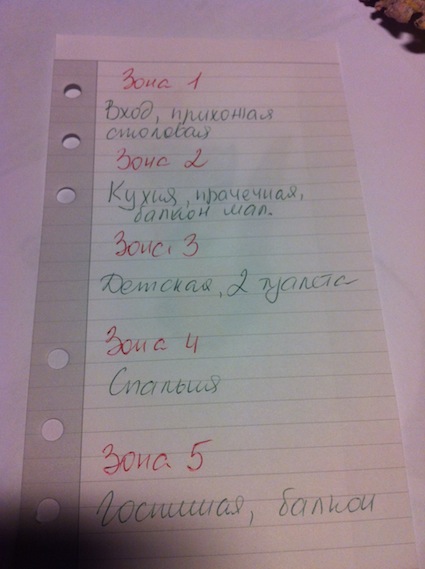 Зона 1
Вход, прихожая
столовая
Зона 2
Кухня, прачечная,
балкон мал.
Зона 3
Детская, 2 туалета
Зона 4
Спальня
Зона 5
Гостиная, балкон